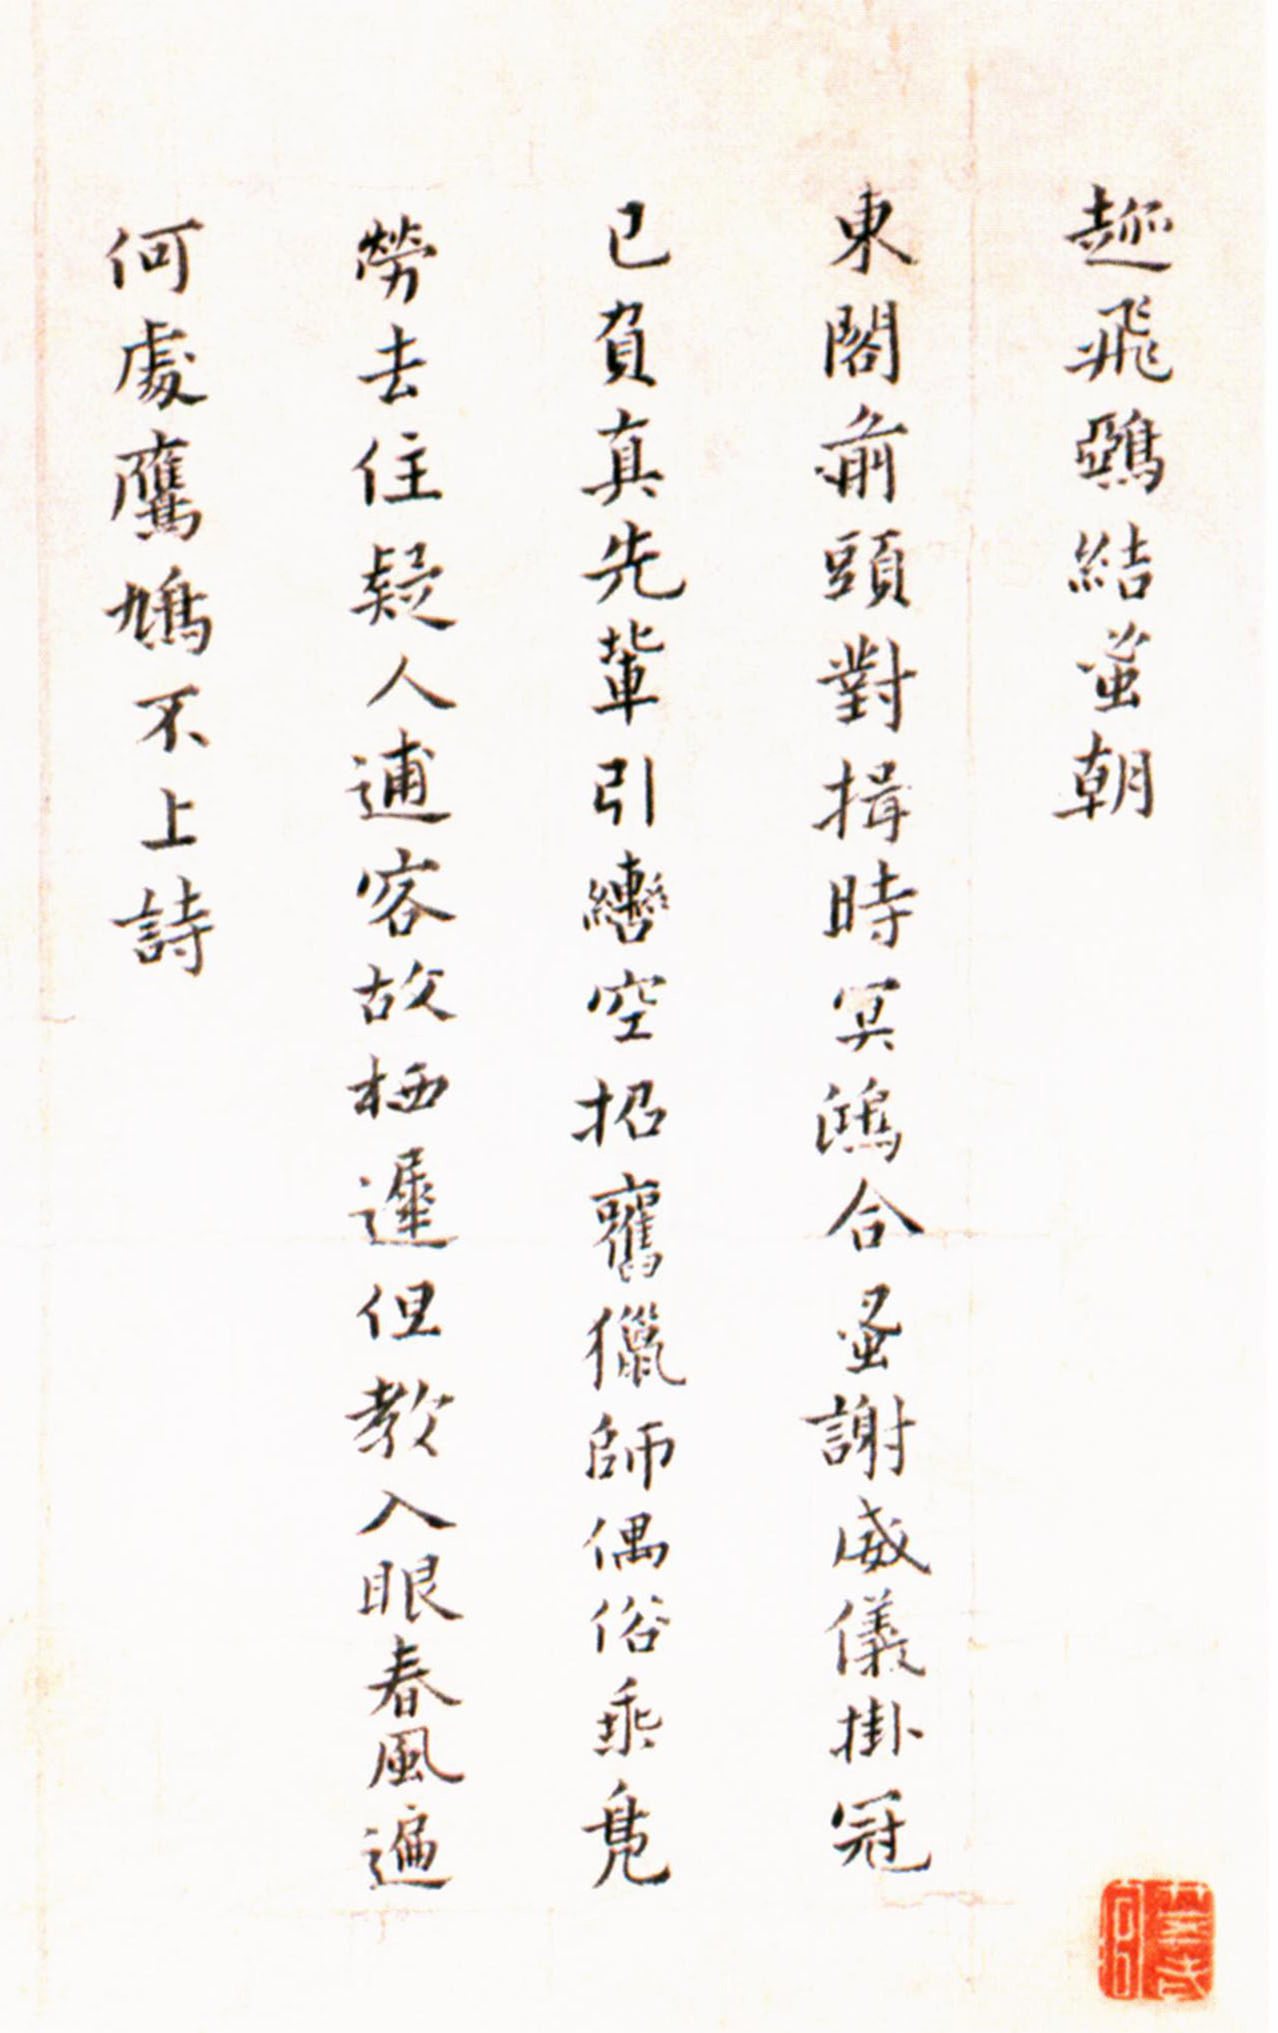 趂飛鵶結蚩朝
東閣前頭對揖時冥鴻合蚤謝威儀掛冠
已負真先輩引轡空招舊獵師偶俗乘鳬
勞去住疑人逋客故栖遲但教入眼春風遍
何處鷹鳩不上詩